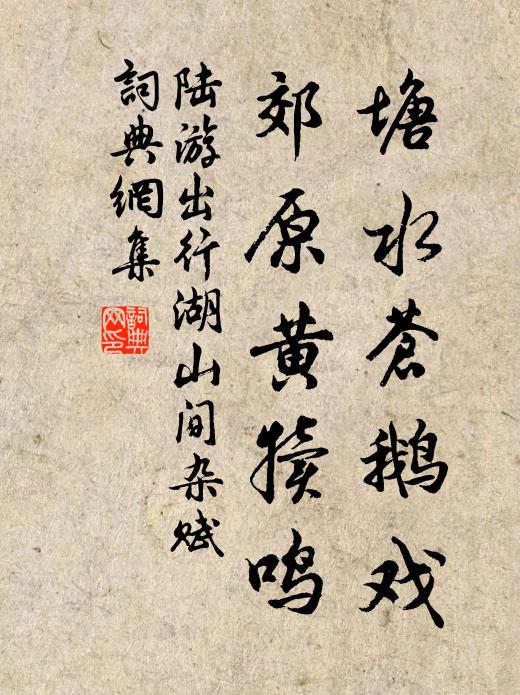 塘水苍鹅戏
郊原黄犊鸣
陆游出行湖山间杂赋
詞典網集
詞典网印